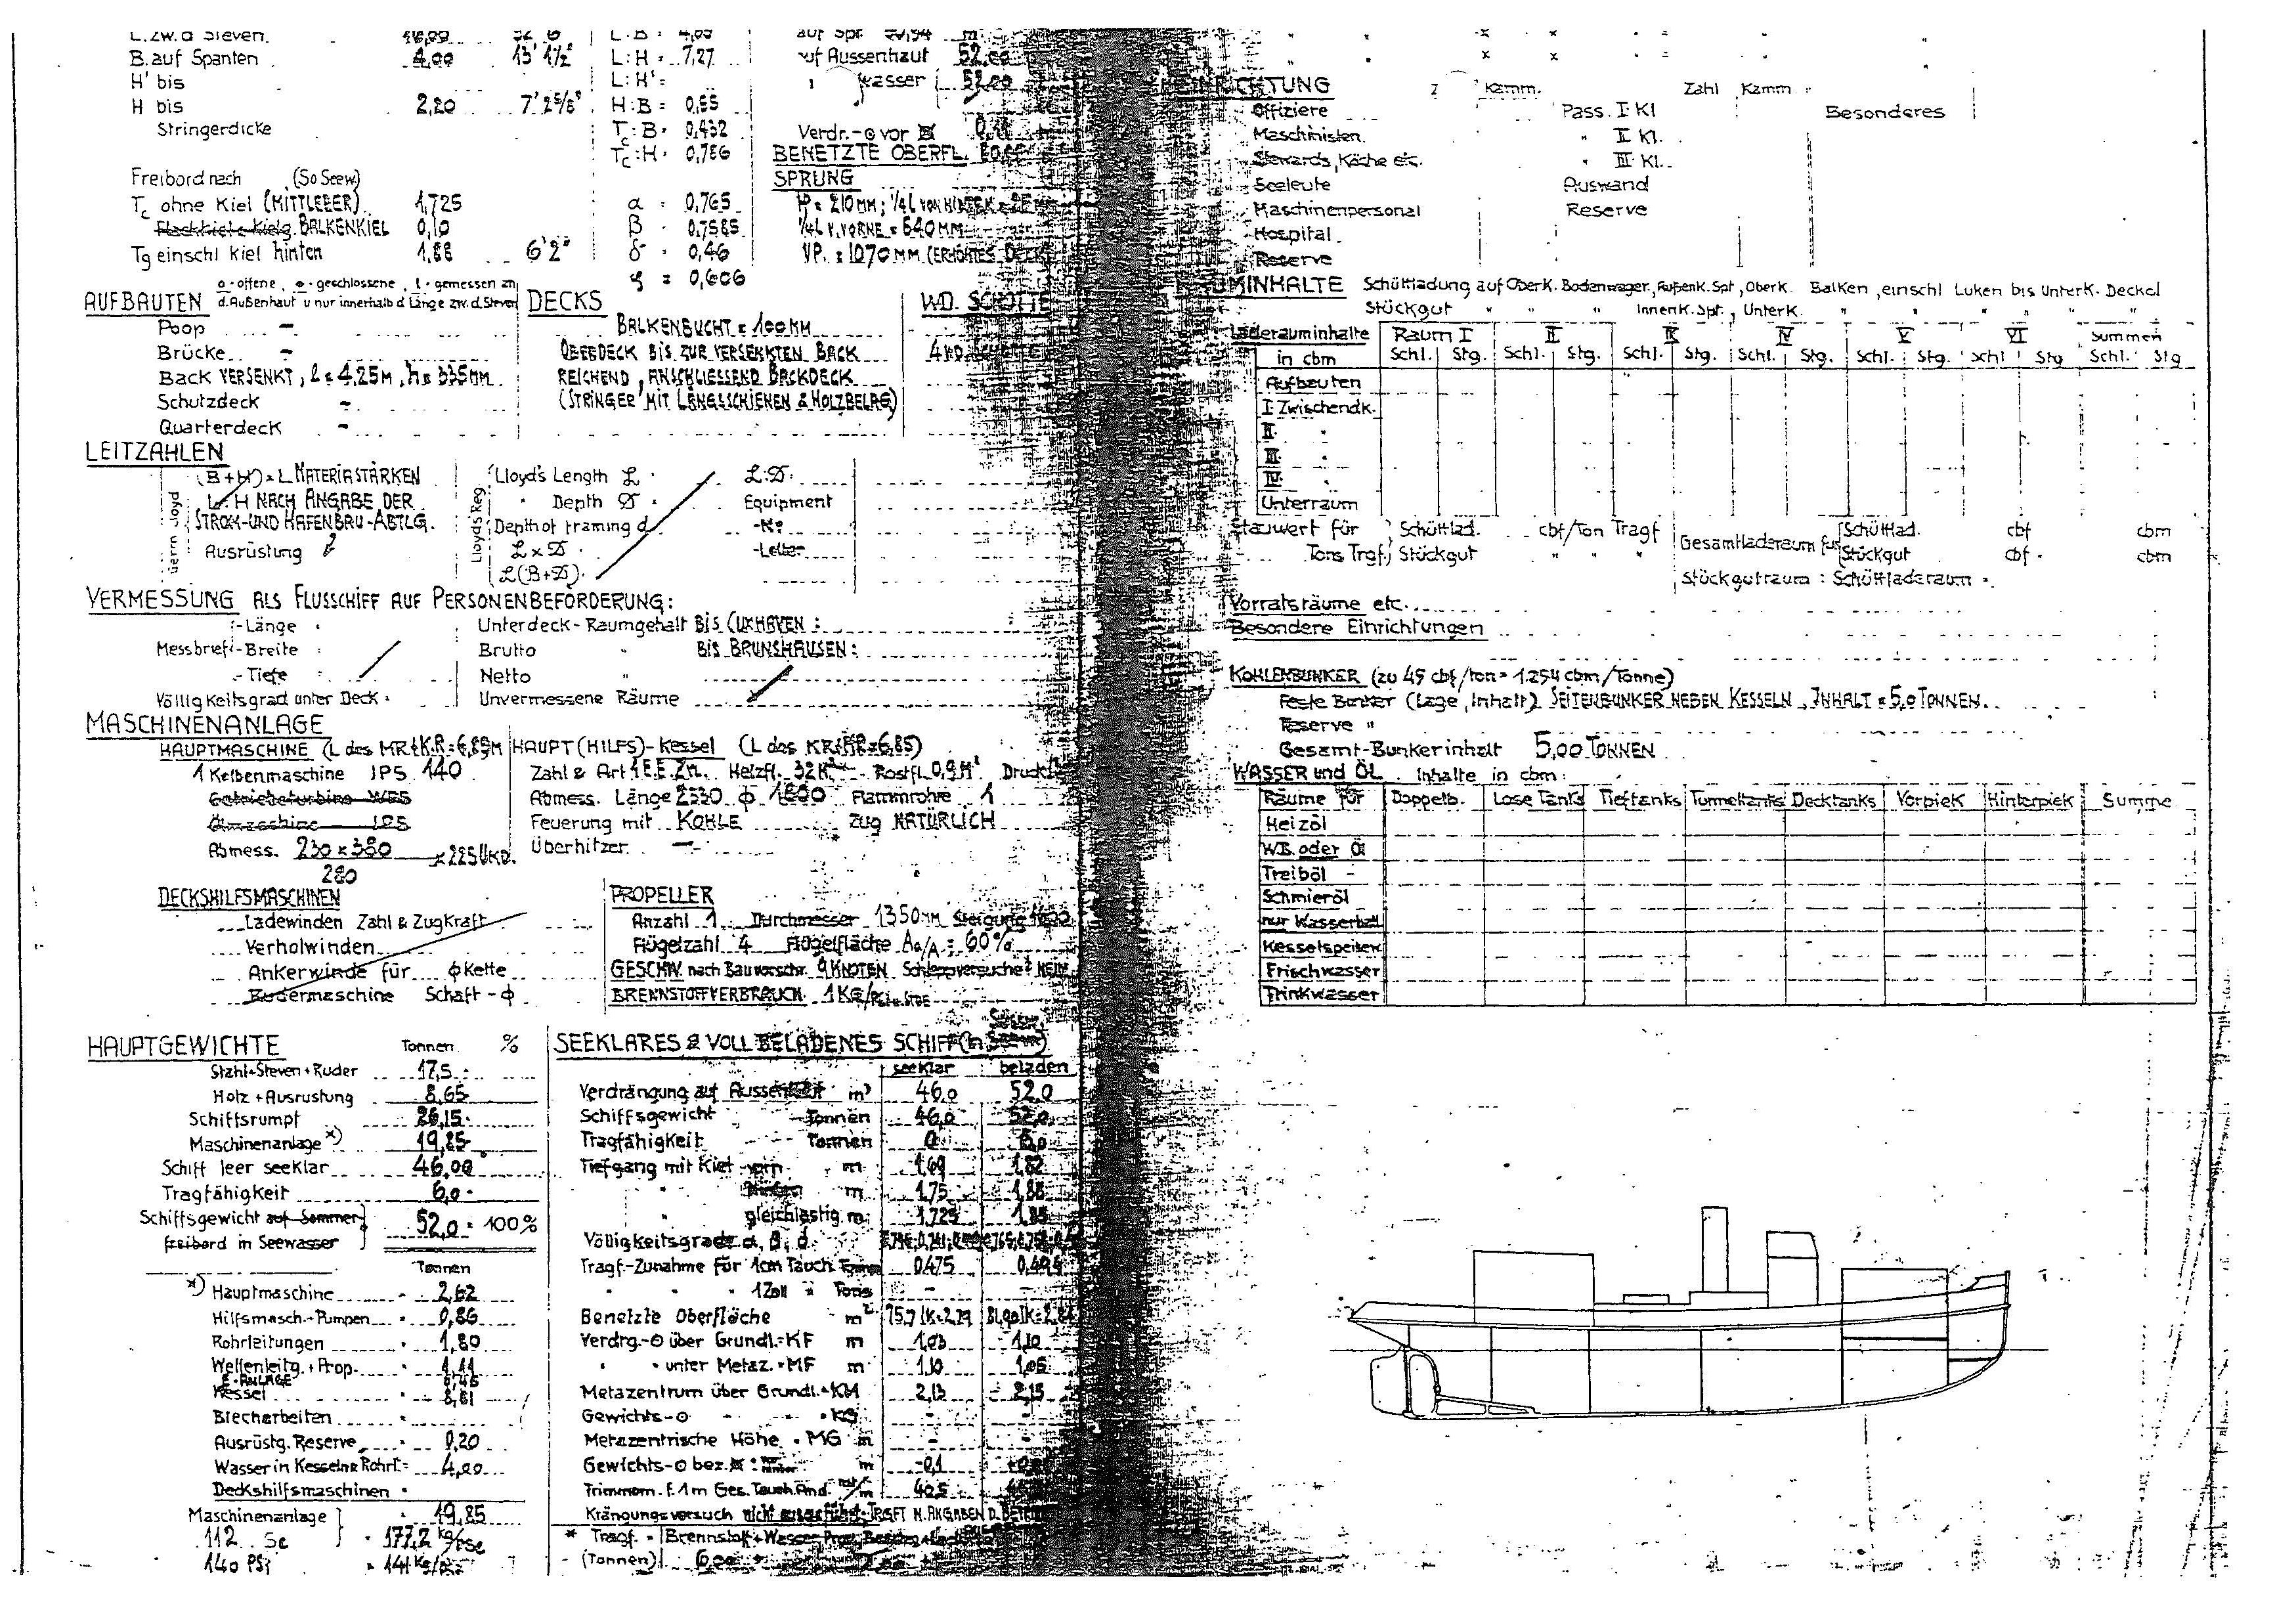 L. zw. d Steven 16,00 L:B = 4,00 auf Spt.
B. auf Spanten 4,00 13' 1½" L:H = 7,27 auf Aussenhaut 52,00
H' bis L:H' = wasser 52,00
H bis 2,20 7' 2⅝" H:B = 0,55
Stringerdicke Tc:B = 0,432 Verdr.-⊙ vor
Tc:H = 0,786 BENETZTE OBERFL.
Freibord nach (So Seew) SPRUNG
Tc ohne Kiel (MITTLERER) 1,725 α = 0,765 HP = 210 MM; ¼ L VON HINTEN =
Flachkiel + Kielg. BALKENKIEL 0,10 β = 0,7585 ¼ L V. VORNE = 640 MM
Tg einschl Kiel hinten 1,88 6' 2" δ = 0,46 VP. = 1070 MM (ERHÖHTES DECK)
φ = 0,606
AUFBAUTEN o-offene, -geschlossene, l-gemessen an d. Außenhaut u nur innerhalb d Länge zw. d. Steven
Poop –
Brücke –
Back VERSENKT, l = 4,25 M, h = 335 MM
Schutzdeck –
Quarterdeck –
DECKS
BALKENBUCHT = 100 MM
OBERDECK BIS ZUR VERSENKTEN BACK
REICHEND, ANSCHLIESSEND BACKDECK
(STRINGER MIT LÄNGSSCHIENEN & HOLZBELAG)
WD. SCHOTTE
4 WD.
LEITZAHLEN
Germ Lloyd
(B+H) × L MATERIASTÄRKEN
L:H NACH ANGABE DER
STROM-UND HAFENBAU-ABTLG.
Ausrüstung
Lloyd's Reg.
Lloyd's Length L. L:D.
" Depth D. Equipment
Depth of framing d -No
L × D. -Letter
L(B+D).
VERMESSUNG ALS FLUSSCHIFF AUF PERSONENBEFÖRDERUNG:
-Länge = Unterdeck-Raumgehalt BIS CUXHAVEN:
Messbrief:-Breite = Brutto " BIS BRUNSHAUSEN:
-Tiefe = Netto "
Völligkeitsgrad unter Deck = Unvermessene Räume
MASCHINENANLAGE
HAUPTMASCHINE (L des MR+K.R.=6,85M
1 Kolbenmaschine IPS 140
Getriebeturbine WPS
Ölmaschine IPS
Abmess. 230 × 380 × 225 UKD.
280
HAUPT(HILFS)-Kessel (L des KR+MR=6,85)
Zahl & Art 1 E.E.Zyl. Heizfl. 32 M² Rostfl. 0,9 M² Druck
Abmess. Länge 2330 φ 1800 Flammrohre 1
Feuerung mit KOHLE Zug NATÜRLICH
Überhitzer –
DECKSHILFSMASCHINEN
Ladewinden Zahl & Zugkraft
Verholwinden
Ankerwinde für φ Kette
Rudermaschine Schaft-φ
PROPELLER
Anzahl 1 Durchmesser 1350 MM Steigung
Flügelzahl 4 Flügelfläche Aa/A = 60%
GESCHW. nach Bauvorschr. 9 KNOTEN Schleppversuche? NEIN
BRENNSTOFFVERBRAUCH 1 KG/
HAUPTGEWICHTE Tonnen %
Stahl+Steven+Ruder 17,5
Holz + Ausrüstung 8,65
Schiffsrumpf 26,15
Maschinenanlage ×) 19,85
Schiff leer seeklar 46,00
Tragfähigkeit 6,0
Schiffsgewicht auf Sommer 52,0 = 100%
freibord in Seewasser
Tonnen
×) Hauptmaschine 2,62
Hilfsmasch.-Pumpen 0,86
Rohrleitungen 1,80
Wellenleitg. + Prop. 1,11
E-ANLAGE 0,45
Kessel 8,81
Blecharbeiten
Ausrüstg. Reserve 0,20
Wasser in Kesseln & Rohrl. = 4,00
Deckshilfsmaschinen
Maschinenanlage 19,85
112 Se = 177,2 kg/PSe
140 PSi = 141 kg/PSi
SEEKLARES & VOLL BELADENES SCHIFF
seeklar beladen
Verdrängung auf Aussenhaut m³ 46,0 52,0
Schiffsgewicht Tonnen 46,0 52,0
Tragfähigkeit Tonnen 0 6,0
Tiefgang mit Kiel vorn m 1,69 1,82
" hinten m 1,75 1,88
" gleichlastig m 1,725 1,85
Völligkeitsgrade α, β, δ
Tragf.-Zunahme für 1cm Tauch. Tonnen 0,475 0,494
" " 1 Zoll " Tons – –
Benetzte Oberfläche m²
Verdrg.-⊙ über Grundl.=KF m 1,03 1,10
" " unter Metaz.=MF m 1,10 1,05
Metazentrum über Grundl.=KM 2,13 2,15
Gewichts-⊙ " " = KG – –
Metazentrische Höhe = MG m – –
Gewichts-⊙ bez. m -0,1
Trimmom. f. 1m Ges. Tauch. Änd. 40,5
Krängungsversuch nicht ausgeführt. TRGFT N. ANGABEN D.
* Tragf. = Brennstoff + Wasser
(Tonnen)
EINRICHTUNG Z Kamm. Zahl Kamm.
Offiziere Pass. I. Kl Besonderes
Maschinisten " II Kl.
Stewards, Köche etc. " III Kl.
Seeleute Auswand
Maschinenpersonal Reserve
Hospital
Reserve
RAUMINHALTE Schüttladung auf Oberk. Bodenwager., Außenk. Spt, Oberk. Balken, einschl Luken bis Unterk. Deckel
Stückgut " " " Innenk. Spt., Unterk. " " " " "
Laderauminhalte Raum I II III IV V VI Summen
in cbm Schl. Stg. Schl. Stg. Schl. Stg. Schl. Stg. Schl. Stg. Schl Stg Schl. Stg
Aufbauten
I Zwischendk.
II "
III "
IV "
Unterraum
Stauwert für Schüttlad. cbf/Ton Tragf Gesamtladeraum für Schüttlad. cbf cbm
Tons Trgf. Stückgut " " " Stückgut cbf cbm
Stückgutraum : Schüttladeraum =
Vorratsräume etc.
Besondere Einrichtungen
KOHLENBUNKER (zu 45 cbf/ton = 1.254 cbm/Tonne)
Feste Bunker (Lage, Inhalt) SEITENBUNKER NEBEN KESSELN, INHALT = 5,0 TONNEN.
Reserve "
Gesamt-Bunkerinhalt 5,00 TONNEN
WASSER und ÖL Inhalte in cbm:
Räume für Doppelb. Lose Tanks Tieftanks Tunneltanks Decktanks Vorpiek Hinterpiek Summe
Heizöl
W.B. oder Öl
Treiböl
Schmieröl
nur Wasserball
Kesselspeisew
Frischwasser
Trinkwasser